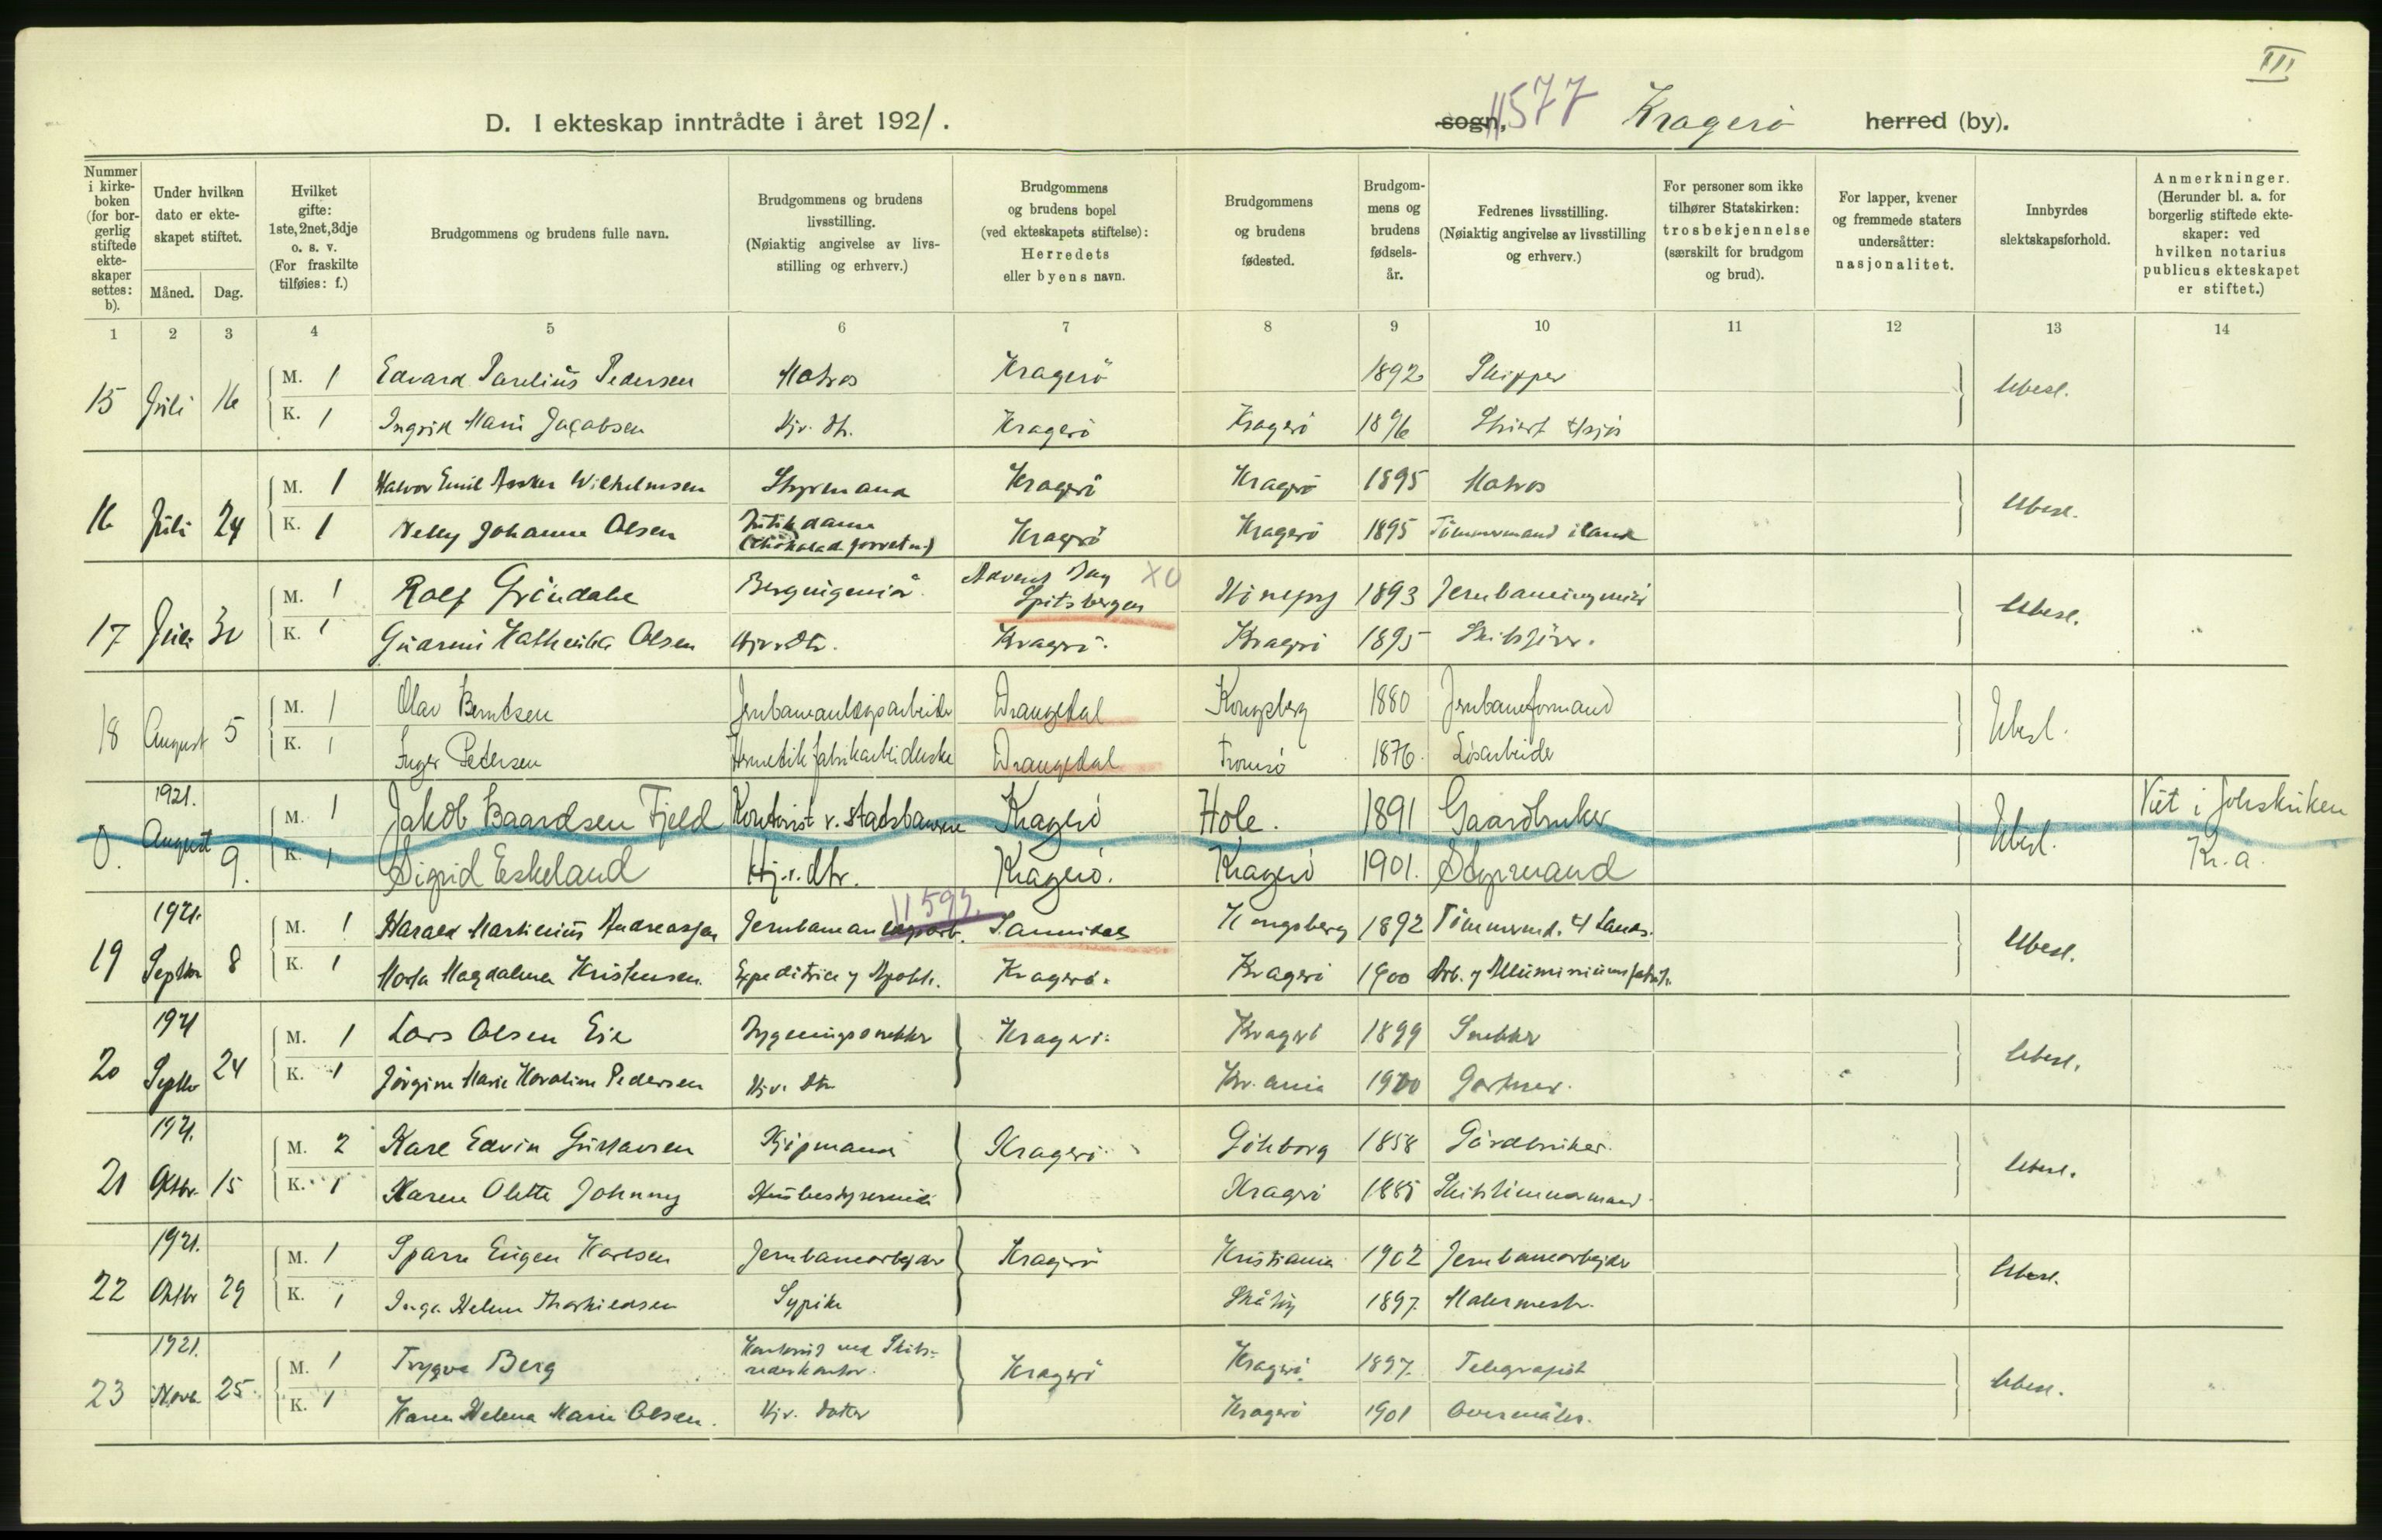 III
D. I ekteskap inntrådte i året 1921.
sogn, 11577 Kragerö herred (by).
Nummer i kirkeboken (for borgerlig stiftede ekteskaper settes: b).
Under hvilken dato er ekteskapet stiftet.
Måned. Dag.
Hvilket gifte: 1ste, 2net, 3dje o. s. v. (For fraskilte tilføies: f.)
Brudgommens og brudens fulle navn.
Brudgommens og brudens livsstilling. (Nøiaktig angivelse av livsstilling og erhverv.)
Brudgommens og brudens bopel (ved ekteskapets stiftelse): Herredets eller byens navn.
Brudgommens og brudens fødested.
Brudgommens og brudens fødselsår.
Fedrenes livsstilling. (Nøiaktig angivelse av livsstilling og erhverv.)
For personer som ikke tilhører Statskirken: trosbekjennelse (særskilt for brudgom og brud).
For lapper, kvener og fremmede staters undersåtter: nasjonalitet.
Innbyrdes slektskapsforhold.
Anmerkninger. (Herunder bl. a. for borgerlig stiftede ekteskaper: ved hvilken notarius publicus ekteskapet er stiftet.)
1 2 3 4 5 6 7 8 9 10 11 12 13 14
15 Juli 16 M. 1 Edvard Parelius Pedersen Matros Kragerö 1892 Skipper Ubesl.
K. 1 Ingrid Marie Jacobsen Hjv. Dtr. Kragerö Kragerö 1896
16 Juli 24 M. 1 Halvor Emil Wilhelmsen Styrmand Kragerö Kragerö 1895 Matros Ubesl.
K. 1 Nelly Johanne Olsen Butikdame Kragerö Kragerö 1895 Tömmermand iland
17 Juli 30 M. 1 Rolf Gröndahl Bergingeniör Advent Bay Spitsbergen XU 1893 Jernbaneingeniör Ubesl.
K. 1 Olsen Hjv. Dtr. Kragerö. Kragerö 1895 Skibsförer.
18 August 5 M. 1 Olav Berntsen Jernbaneanlægsarbeider Drangedal Kongsberg 1880 Jernbaneformand Ubesl.
K. 1 Inger Petersen Hermetikfabrikarbeiderske Drangedal Tromsö 1876 Lösarbeider
1921.
0. August 9. M. 1 Jakob Baardsen Fjeld Kontorist v. Statsbanene Kragerö Hole. 1891 Gaardbruker Ubesl. Viet i Johs kirken
K. 1 Sigrid Eskeland Hj.v. dtr. Kragerö. Kragerö 1901. Styrmand Kr.a.
1921. 11593.
19 Septbr 8 M. 1 Harald Martinius Andreassen Jernbaneanlegsarb. Sannidal Kongsberg 1892 Tömmermd. Ubesl.
K. 1 Magdalena Kristensen. Kragerö. Kragerö 1900 Arb. Alluminiumsfabrik.
1921
20 Septbr 24 M. 1 Lars Olsen Eie Bygningssnekker Kragerö. Kragerö 1899 Snekker Ubesl.
K. 1 Jörgine Marie Karoline Pedersen Hjv. Dtr. Kr.ania 1900 Gartner.
1921.
21 Oktbr. 15 M. 2 Karl Edvin Gustavsen Kjöpmand Kragerö Göteborg 1858 Gårdbruker. Ubesl.
K. 1 Karen Olette Johnny Husbestyrerinde Kragerö 1885 Skibstömmermand
1921.
22 Oktbr 29 M. 1 Sparre Eugen Karlsen Jernbanearbejder Kragerö Kristiania 1902 Jernbanearbejder Ubesl.
K. 1 Inga Helene Thorkildsen Sypike Skåtöy 1897. Malermestr.
1921.
23 Novb. 25. M. 1 Trygve Berg Kontorist ved Skibsrederkontor. Kragerö Kragerö. 1897. Telegrafist Ubesl.
K. 1 Karen Helena Marie Olsen. Hjv. datter Kragerö 1901